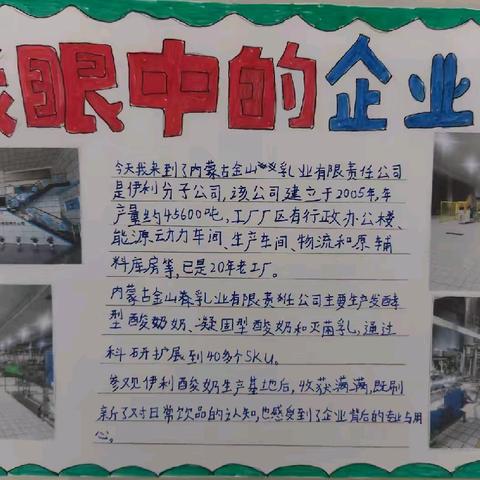 我眼中的企业
今天我来到了内蒙古金山乳业有限责任公司
是伊利分子公司，该公司建立于2005年，年
产量约45600吨，工厂厂区有行政办公楼、
能源动力车间、生产车间、物流和原辅
料库房等，已是20年老工厂。
内蒙古金山乳业有限责任公司主要生产发酵
型酸奶奶、凝固型酸奶和灭菌乳，通过
科研扩展到40多个SKU。
参观伊利酸奶生产基地后，收获满满，既刷
新了对日常饮品的认知，也感受到了企业背后的专业与用
心。